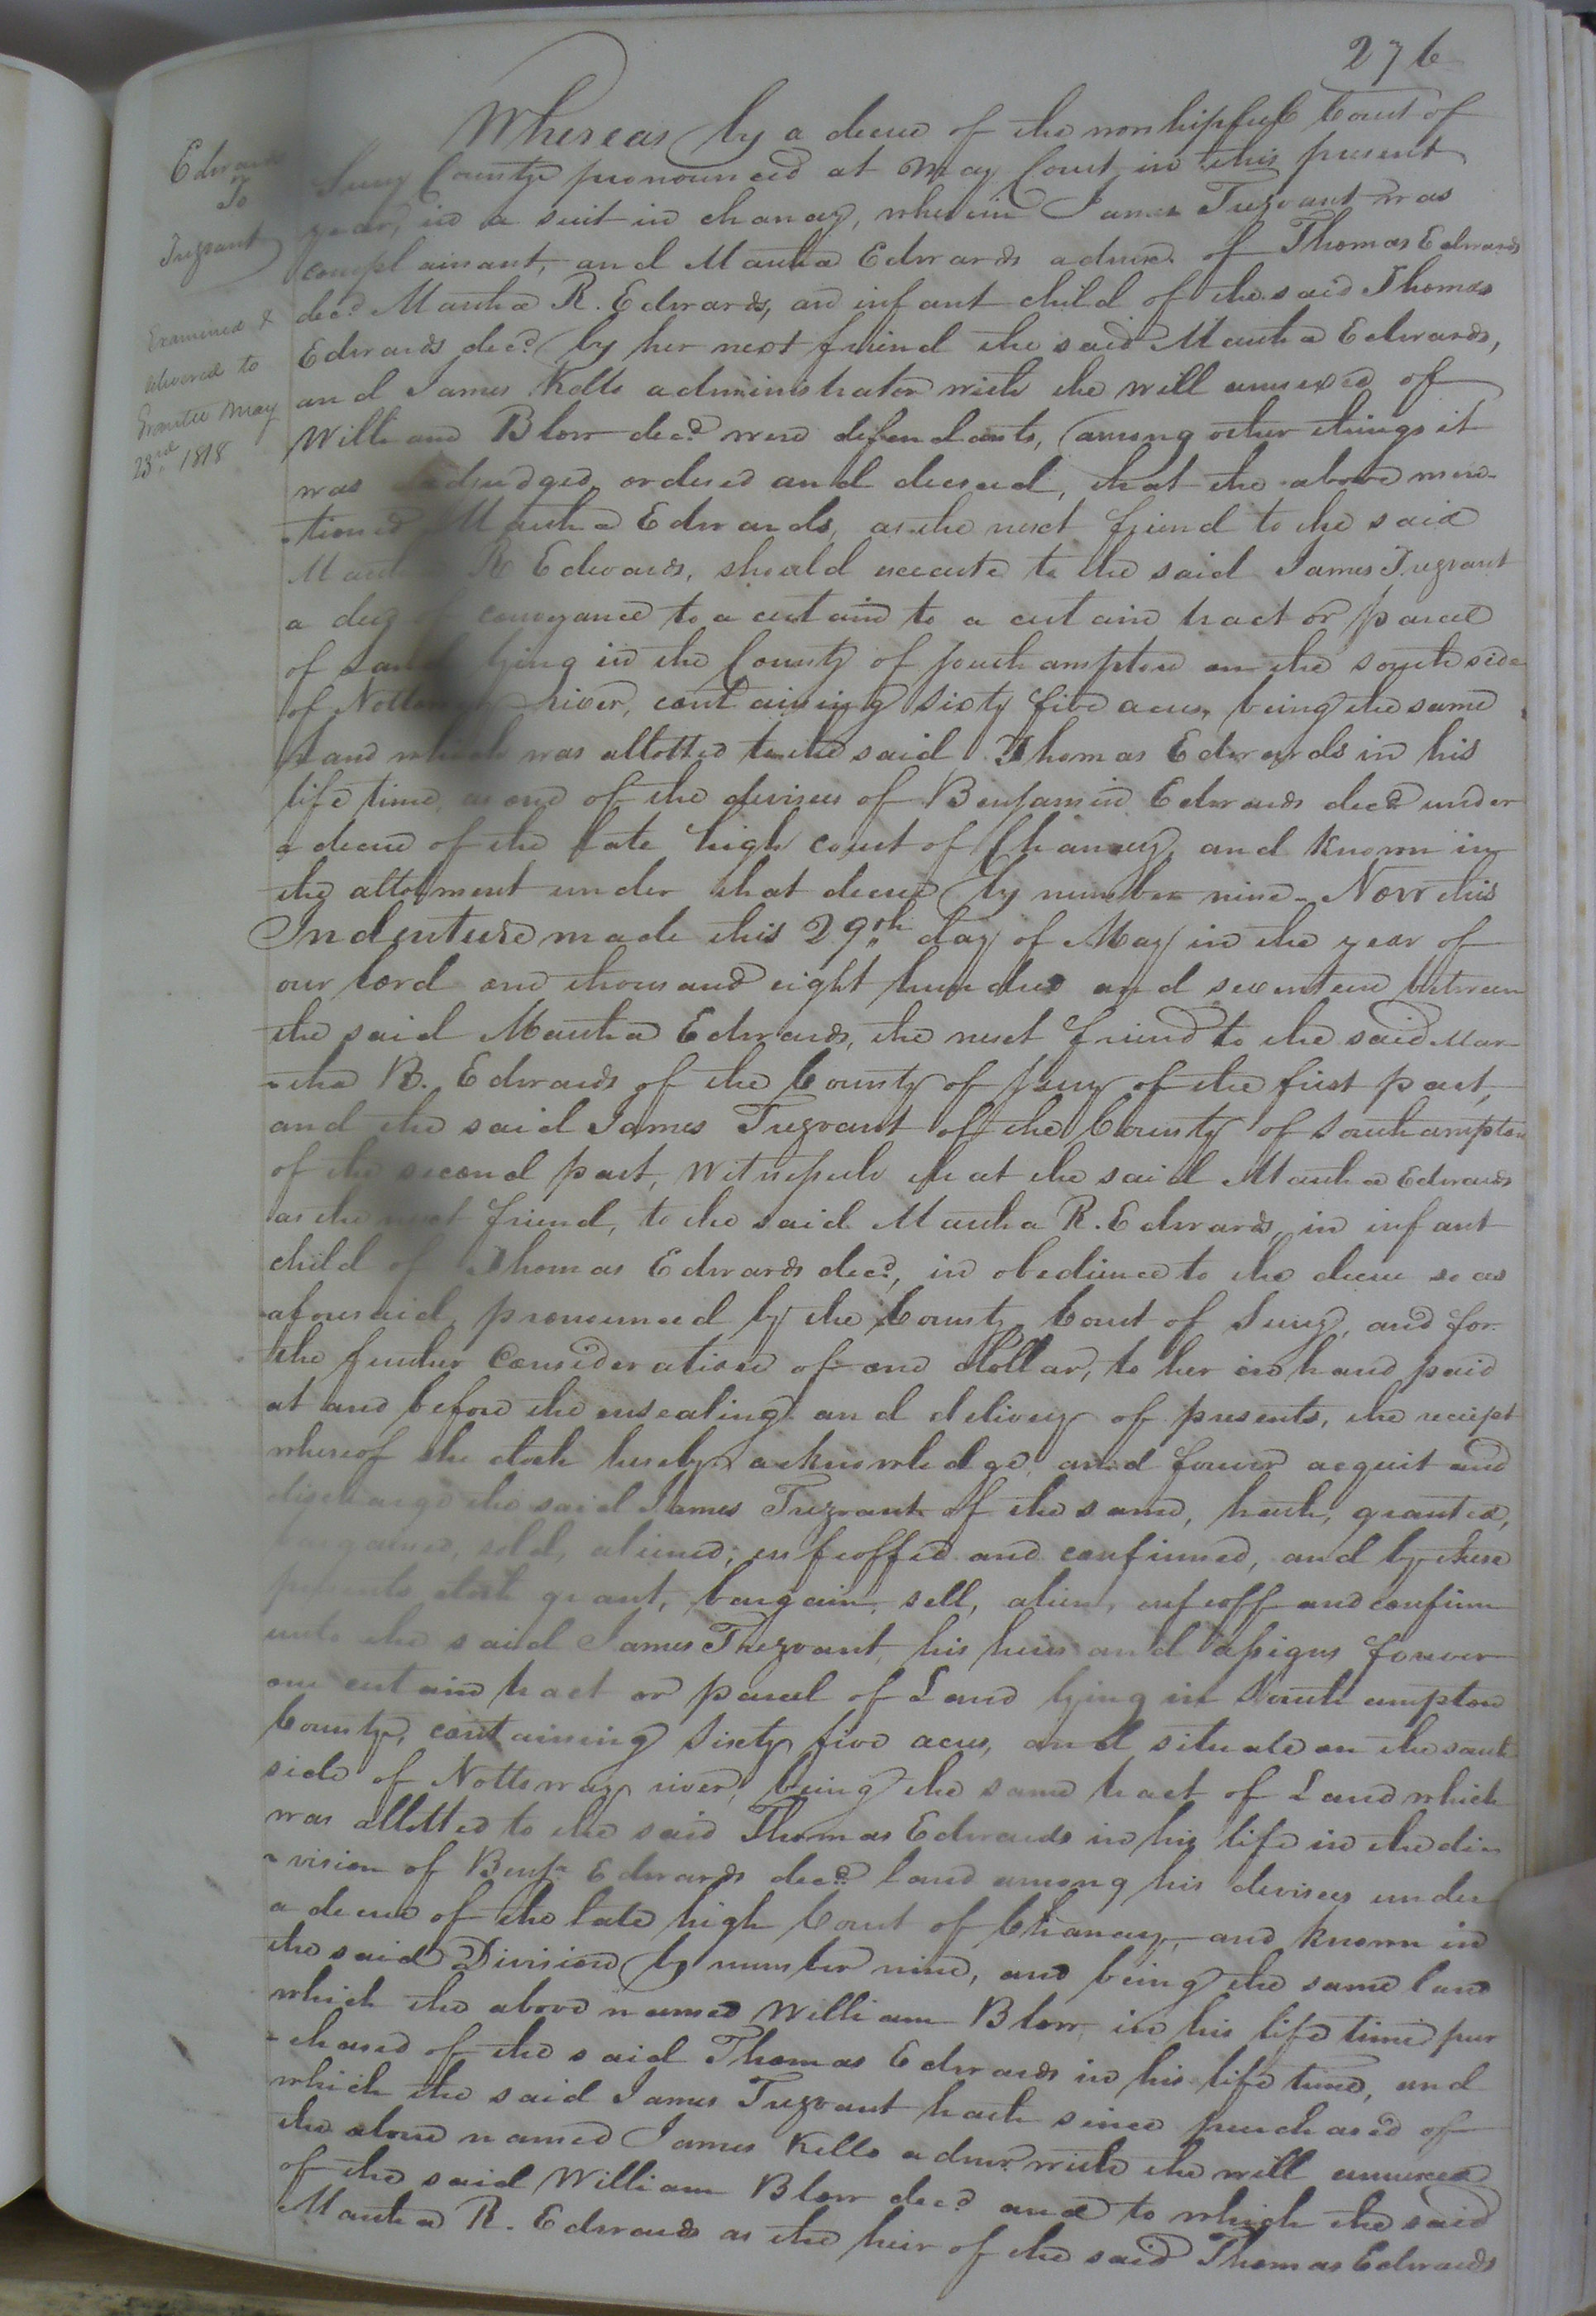 276
Edwards
To
Trezvant
Examined &
delivered to
Grantee May
23rd 1818
Whereas by a decree of the worshipfull Court of
Surry County pronounced at May Court in this present
year, in a suit in chancery, wherein James Trezvant was
complainant, and Martha Edwards admrx. of Thomas Edwards
decd. Martha R. Edwards, an infant child of the said Thomas
Edwards decd. by her next friend the said Martha Edwards,
and James Kello administrator with the will annexed of
William Blow decd. were defendants, among other things it
was adjudged, ordered and decreed, that the above men-
-tioned Martha Edwards, as the next friend to the said
Martha R Edwards, should execute to the said James Trezvant
a deed of conveyance to a certain to a certain tract or parcel
of Land lying in the County of Southampton on the south side
of Nottoway river, containing sixty five acres, being the same
Land which was allotted to the said Thomas Edwards in his
life time, as one of the devisees of Benjamin Edwards decd. under
a decree of the late high court of Chancery, and known in
the allotment under that decree by number nine - Now this
Indenture made this 29th day of May in the year of
our lord one thousand eight hundred and seventeen between
the said Martha Edwards, the next friend to the said Mar-
-tha R. Edwards of the County of Surry of the first part,
and the said James Trezvant of the County of Southampton
of the second part, Witnesseth that the said Martha Edwards
as the next friend, to the said Martha R. Edwards, in infant
child of Thomas Edwards decd, in obedience to the decree so as
aforesaid, pronounced by the County Court of Surry, and for
the further consideration of one dollar, to her in hand paid
at and before the ensealing and delivery of presents, the reciept
whereof she doth hereby acknowledge, and forever acquit and
discharge the said James Trezvant of the same, hath, granted,
bargained, sold, aliened, enfeoffed and confirmed, and by these
presents doth grant, bargain, sell, alien, enfeoff and confirm
unto the said James Trezvant, his heirs and assigns forever
one certain tract or parcel of Land lying in Southampton
County, containing Sixty five acres, and situate on the south
side of Nottoway river, being the same tract of Land which
was allotted to the said Thomas Edwards in his life in the di-
-vision of Benjn. Edwards decd. land among his devisees under
a decree of the late high Court of Chancery, and known in
the said Division by number nine, and being the same land
which the above named William Blow in his life time pur
-chased of the said Thomas Edwards in his life time, and
which the said James Trezvant hath since purchased of
the above named James Kello admr. with the will annexed
of the said William Blow decd. and to which the said
Martha R. Edwards as the heir of the said Thomas Edwards